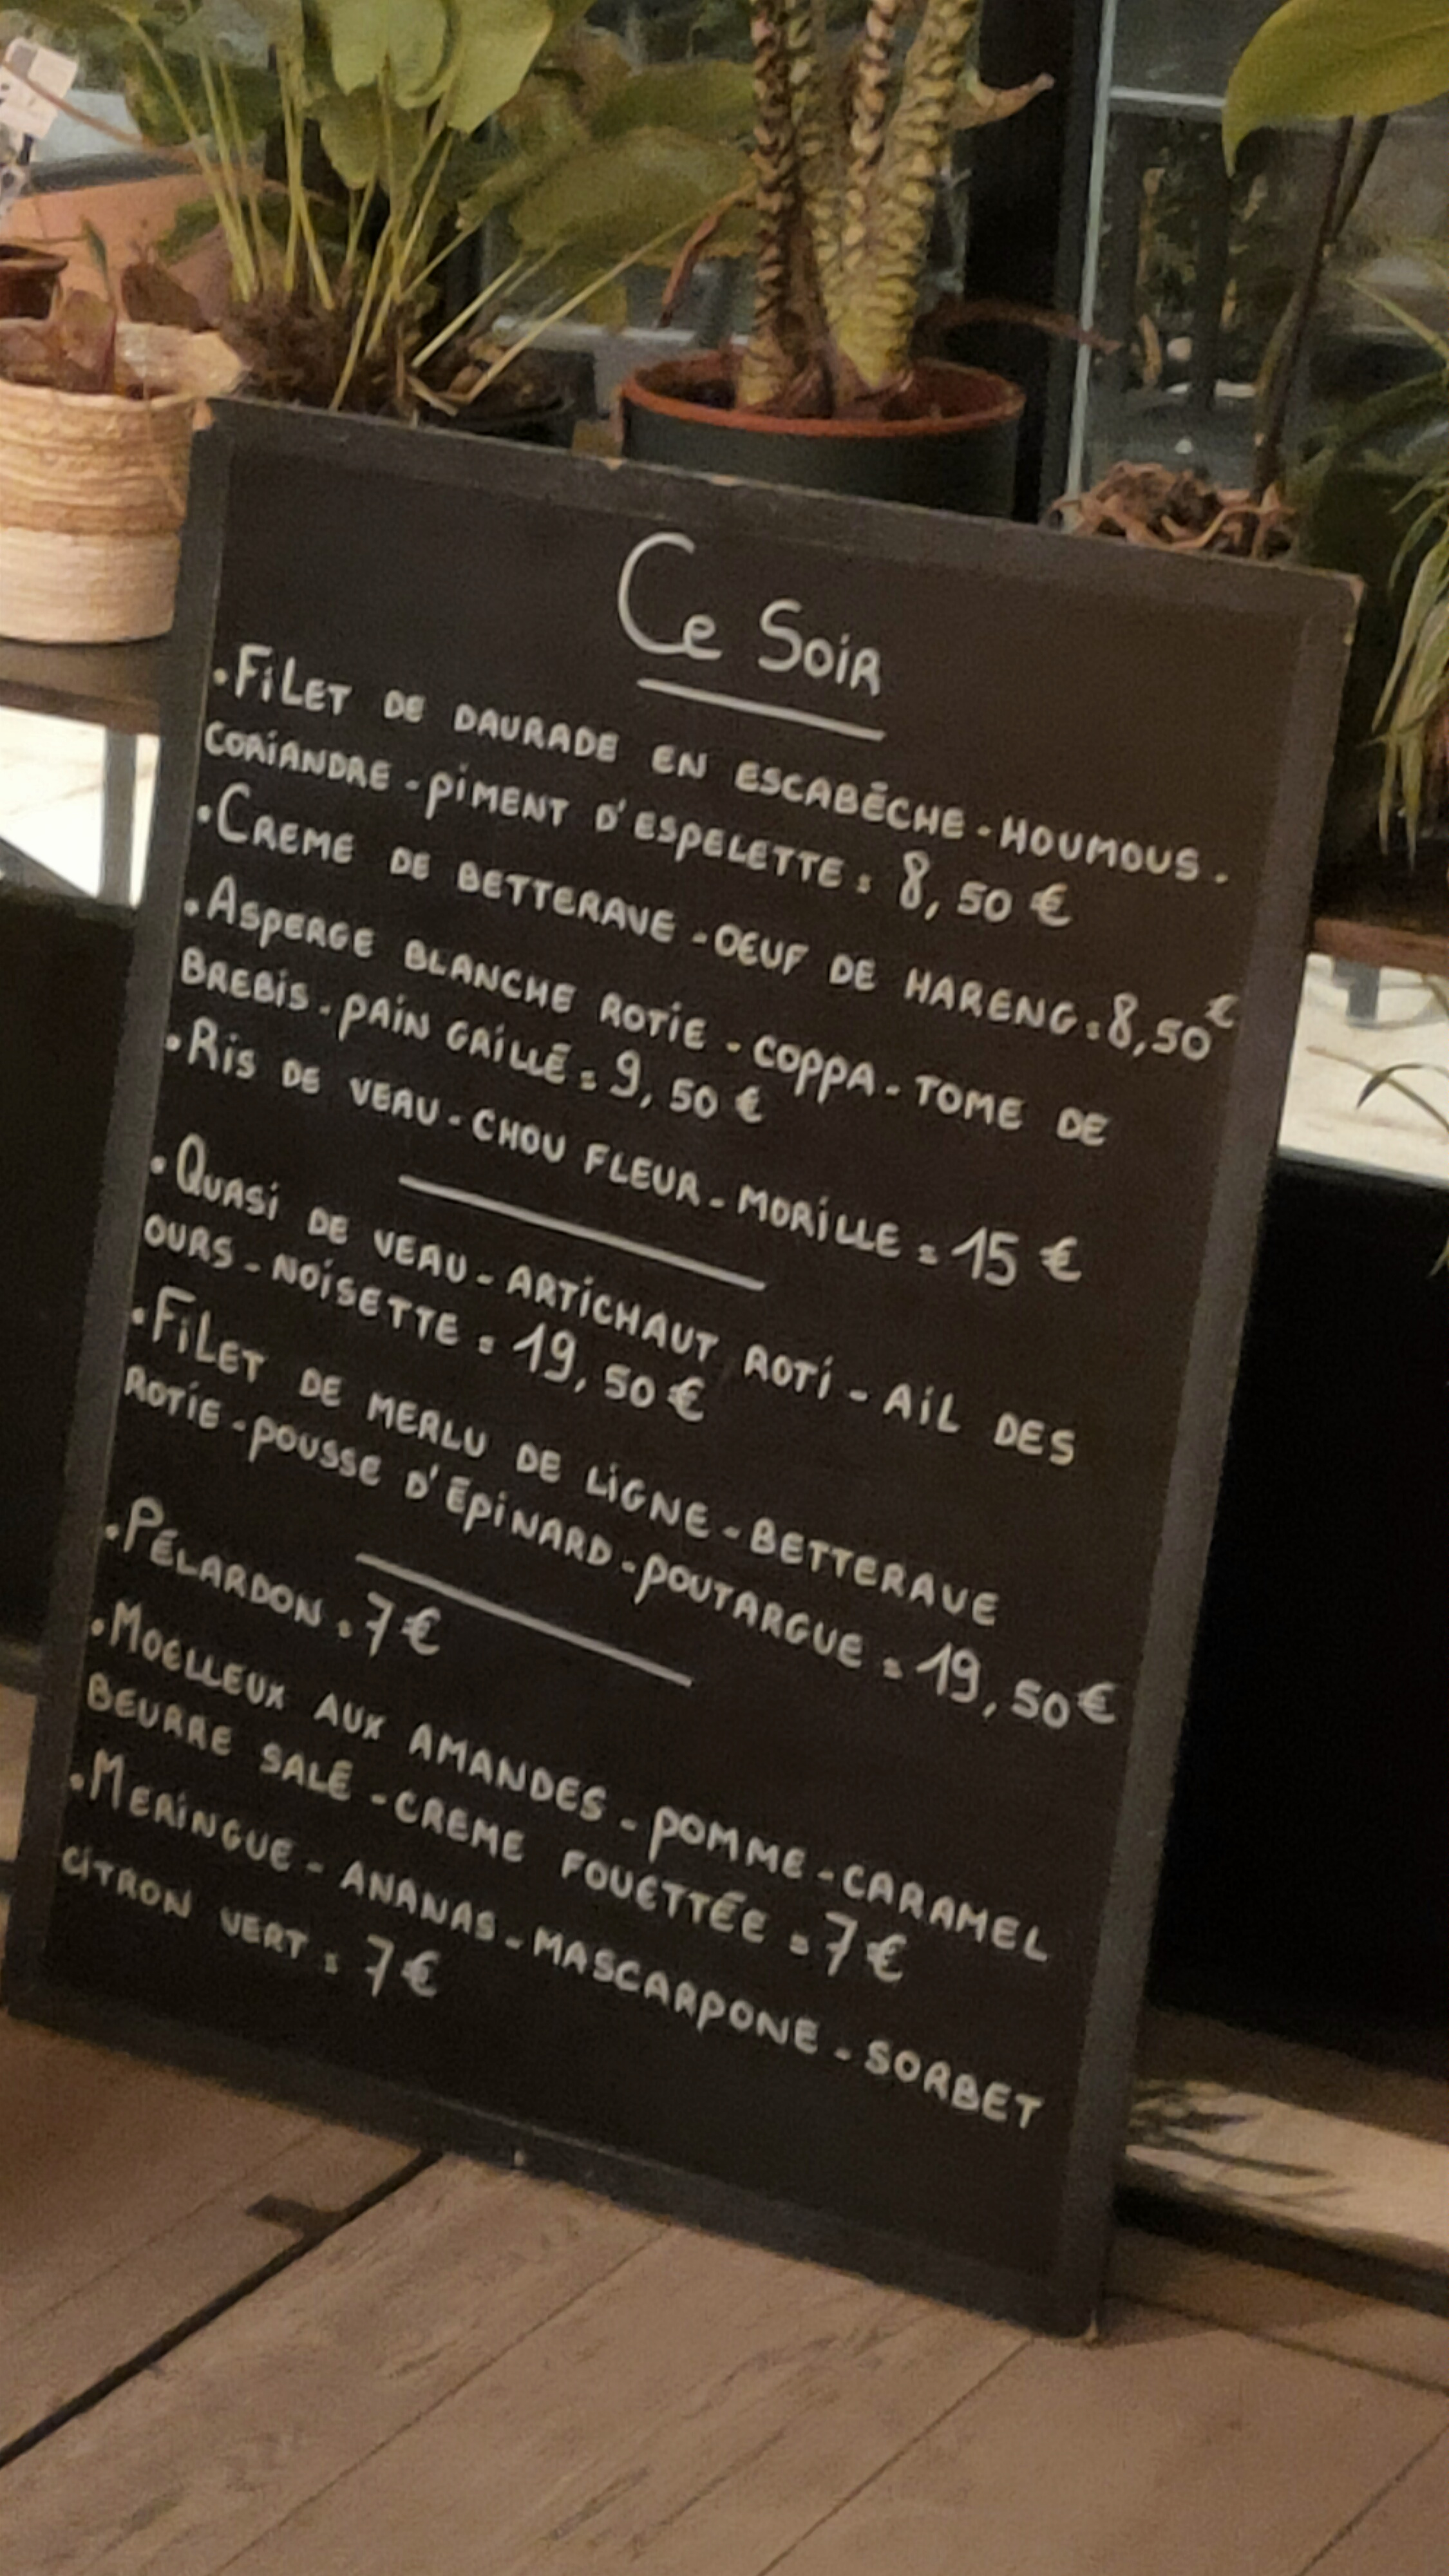 Ce Soir
.FiLET DE DAURADE EN ESCABÊCHE-HOUMOUS-
CORIANDRE-PIMENT D'ESPELETTE: 8,50 €
.CREME DE BETTERAVE-OEUF DE HARENG:8,50€
.ASPERGE BLANCHE ROTIE-COPPA-TOME DE
BREBIS-PAIN GRILLÉ: 9,50 €
.RIS DE VEAU-CHOU FLEUR-MORILLE: 15 €
.QUASI DE VEAU-ARTICHAUT ROTI-AIL DES
OURS-NOISETTE: 19,50 €
.FILET DE MERLU DE LIGNE-BETTERAVE
ROTIE-POUSSE D'ÉPINARD-POUTARGUE: 19,50€
.PÉLARDON:7€
.MOELLEUX AUX AMANDES-POMME-CARAMEL
BEURRE SALÉ-CREME FOUETTÉE:7€
.MERINGUE-ANANAS-MASCARPONE-SORBET
CITRON VERT: 7€